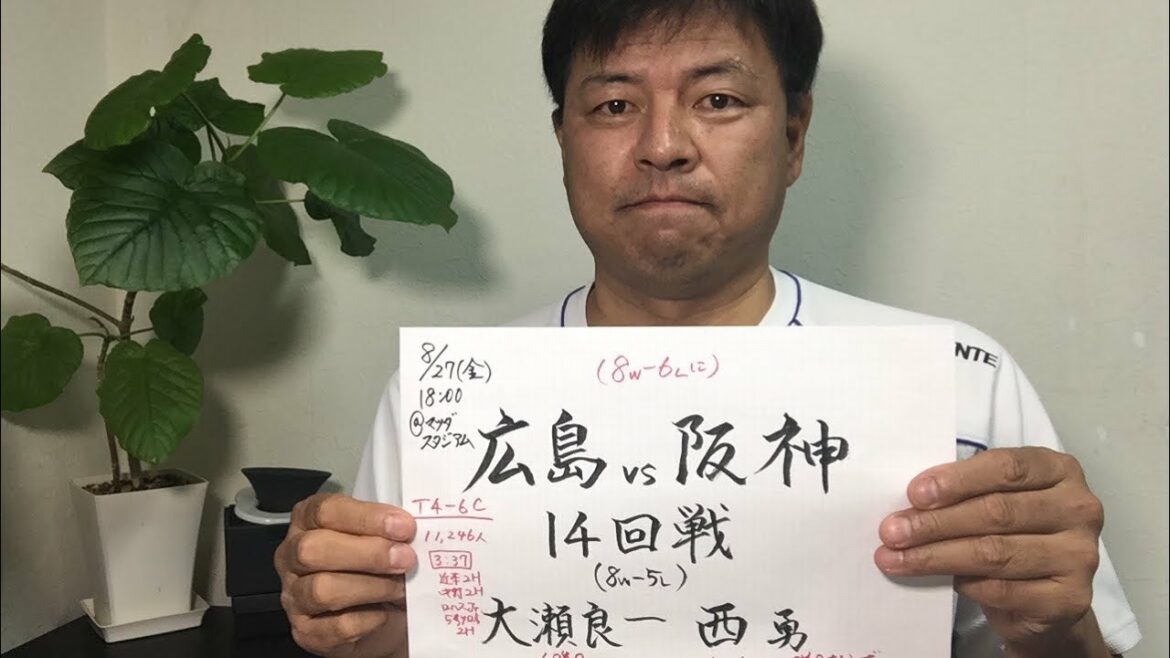 8/27(金)
18:00
@マツダ
スタジアム
(8W-6Lに)
広島 vs 阪神
14回戦
(8W-5L)
大瀬良 ー 西 勇
T4-6C
11,246人
3:37
近本2H
中野2H
ロハスJr
5号ソロ
2H
NTE